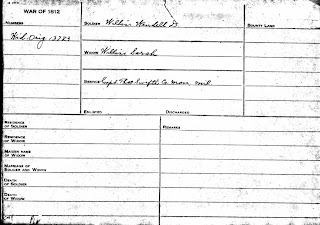 WAR OF 1812
NUMBERS
Wid. Orig. 13783
SOLDIER Willis Wendell D
WIDOW Willis Sarah
SERVICE Capt Thos Swift's Co. Mass. Mil.
ENLISTED DISCHARGED
BOUNTY LAND
RESIDENCE OF SOLDIER
RESIDENCE OF WIDOW
MAIDEN NAME OF WIDOW
MARRIAGE OF SOLDIER AND WIDOW
DEATH OF SOLDIER
DEATH OF WIDOW
REMARKS